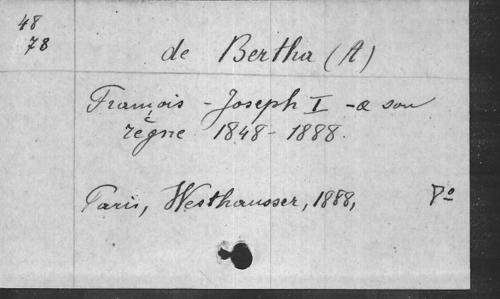 48
78
de Bertha (A)
François - Joseph I - & son
règne 1848 - 1888.
Paris, Westhausser, 1888,